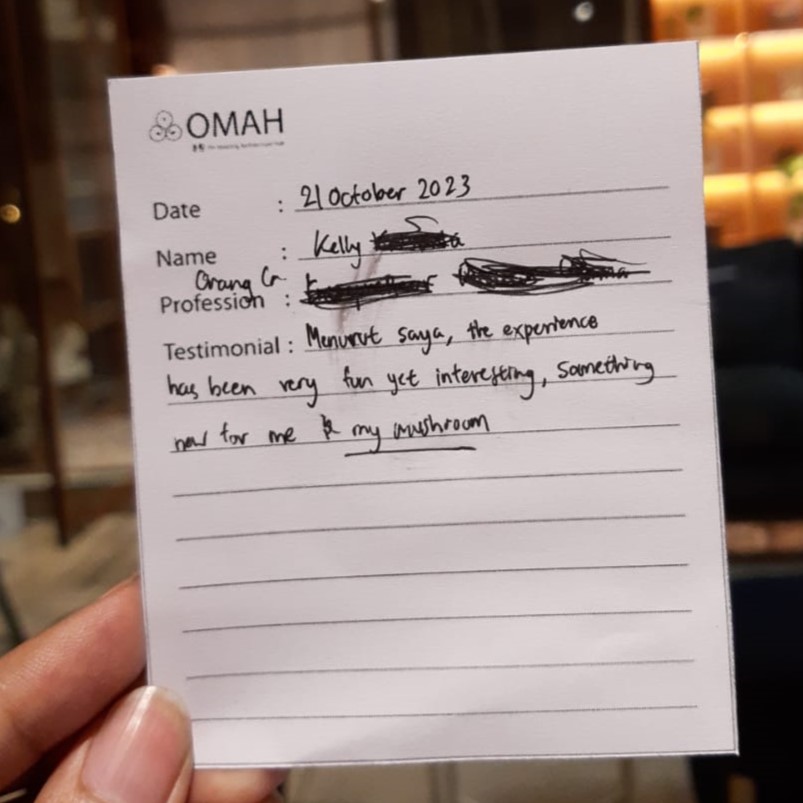 OMAH
Date : 21 October 2023
Name : Kelly S
Orang Gr
Profession :
Testimonial : Menurut saya, the experience
has been very fun yet interesting, something
new for me & my mushroom